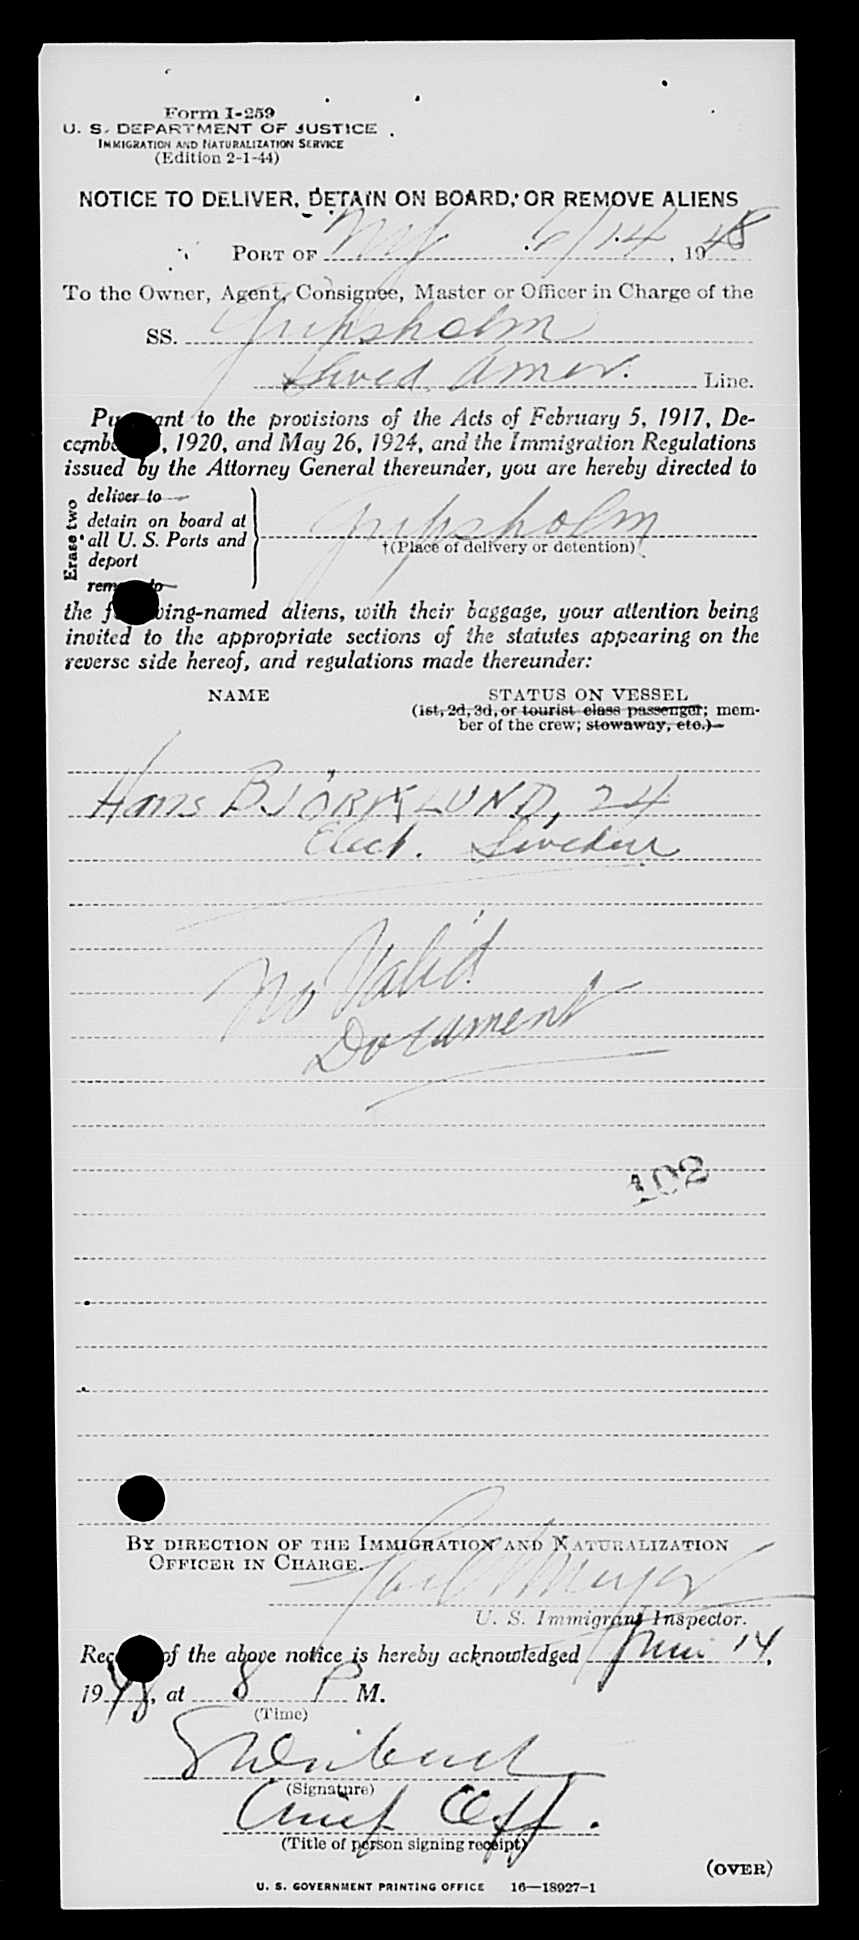 Form I-259
U. S. DEPARTMENT OF JUSTICE
IMMIGRATION AND NATURALIZATION SERVICE
(Edition 2-1-44)
NOTICE TO DELIVER, DETAIN ON BOARD, OR REMOVE ALIENS
PORT OF NY 6/14, 1948
To the Owner, Agent, Consignee, Master or Officer in Charge of the
SS. Gripsholm
Swed. Amer. Line.
Pursuant to the provisions of the Acts of February 5, 1917, De-
cember , 1920, and May 26, 1924, and the Immigration Regulations
issued by the Attorney General thereunder, you are hereby directed to
Erase two
deliver to
detain on board at
all U. S. Ports and
deport
remove to
Gripsholm
†(Place of delivery or detention)
the following-named aliens, with their baggage, your attention being
invited to the appropriate sections of the statutes appearing on the
reverse side hereof, and regulations made thereunder:
NAME STATUS ON VESSEL
(1st, 2d, 3d, or tourist class passenger; mem-
ber of the crew; stowaway, etc.)
Hans BJÖRKLUND, 24
Elect. Sweden
No Valid
Document
102
BY DIRECTION OF THE IMMIGRATION AND NATURALIZATION
OFFICER IN CHARGE.
Meyer
U. S. Immigrant Inspector.
Receipt of the above notice is hereby acknowledged June 14,
1948, at 8 P M.
(Time)
(Signature)
Chief Off.
(Title of person signing receipt)
(OVER)
U. S. GOVERNMENT PRINTING OFFICE 16—18927-1